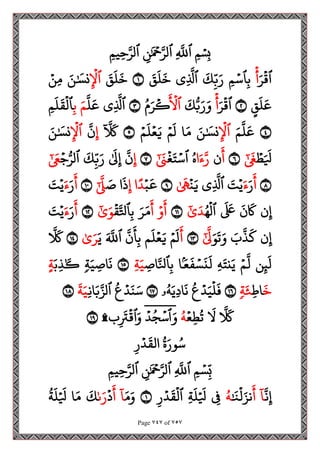 بِسْمِ ٱللَّهِ ٱلرَّحْمَٰنِ ٱلرَّحِيمِ
ٱقْرَأْ بِٱسْمِ رَبِّكَ ٱلَّذِى خَلَقَ ١ خَلَقَ ٱلْإِنسَٰنَ مِنْ
عَلَقٍ ٢ ٱقْرَأْ وَرَبُّكَ ٱلْأَكْرَمُ ٣ ٱلَّذِى عَلَّمَ بِٱلْقَلَمِ
٤ عَلَّمَ ٱلْإِنسَٰنَ مَا لَمْ يَعْلَمْ ٥ كَلَّآ إِنَّ ٱلْإِنسَٰنَ
لَيَطْغَىٰٓ ٦ أَن رَّءَاهُ ٱسْتَغْنَىٰٓ ٧ إِنَّ إِلَىٰ رَبِّكَ ٱلرُّجْعَىٰٓ
٨ أَرَءَيْتَ ٱلَّذِى يَنْهَىٰ ٩ عَبْدًا إِذَا صَلَّىٰٓ ١٠ أَرَءَيْتَ
إِن كَانَ عَلَى ٱلْهُدَىٰٓ ١١ أَوْ أَمَرَ بِٱلتَّقْوَىٰٓ ١٢ أَرَءَيْتَ
إِن كَذَّبَ وَتَوَلَّىٰٓ ١٣ أَلَمْ يَعْلَم بِأَنَّ ٱللَّهَ يَرَىٰ ١٤ كَلَّا
لَئِن لَّمْ يَنتَهِ لَنَسْفَعًۢا بِٱلنَّاصِيَةِ ١٥ نَاصِيَةٍ كَٰذِبَةٍ
خَاطِئَةٍ ١٦ فَلْيَدْعُ نَادِيَهُۥ ١٧ سَنَدْعُ ٱلزَّبَانِيَةَ ١٨
كَلَّا لَا تُطِعْهُ وَٱسْجُدْ وَٱقْتَرِب۩ ١٩
سُورَةُ ٱلقَدْرِ
بِّسْمِ ٱللَّهِ ٱلرَّحْمَٰنِ ٱلرَّحِيمِ
إِنَّآ أَنزَلْنَٰهُ فِى لَيْلَةِ ٱلْقَدْرِ ١ وَمَآ أَدْرَىٰكَ مَا لَيْلَةُ
Page ٧٤٧ of ٧٥٧